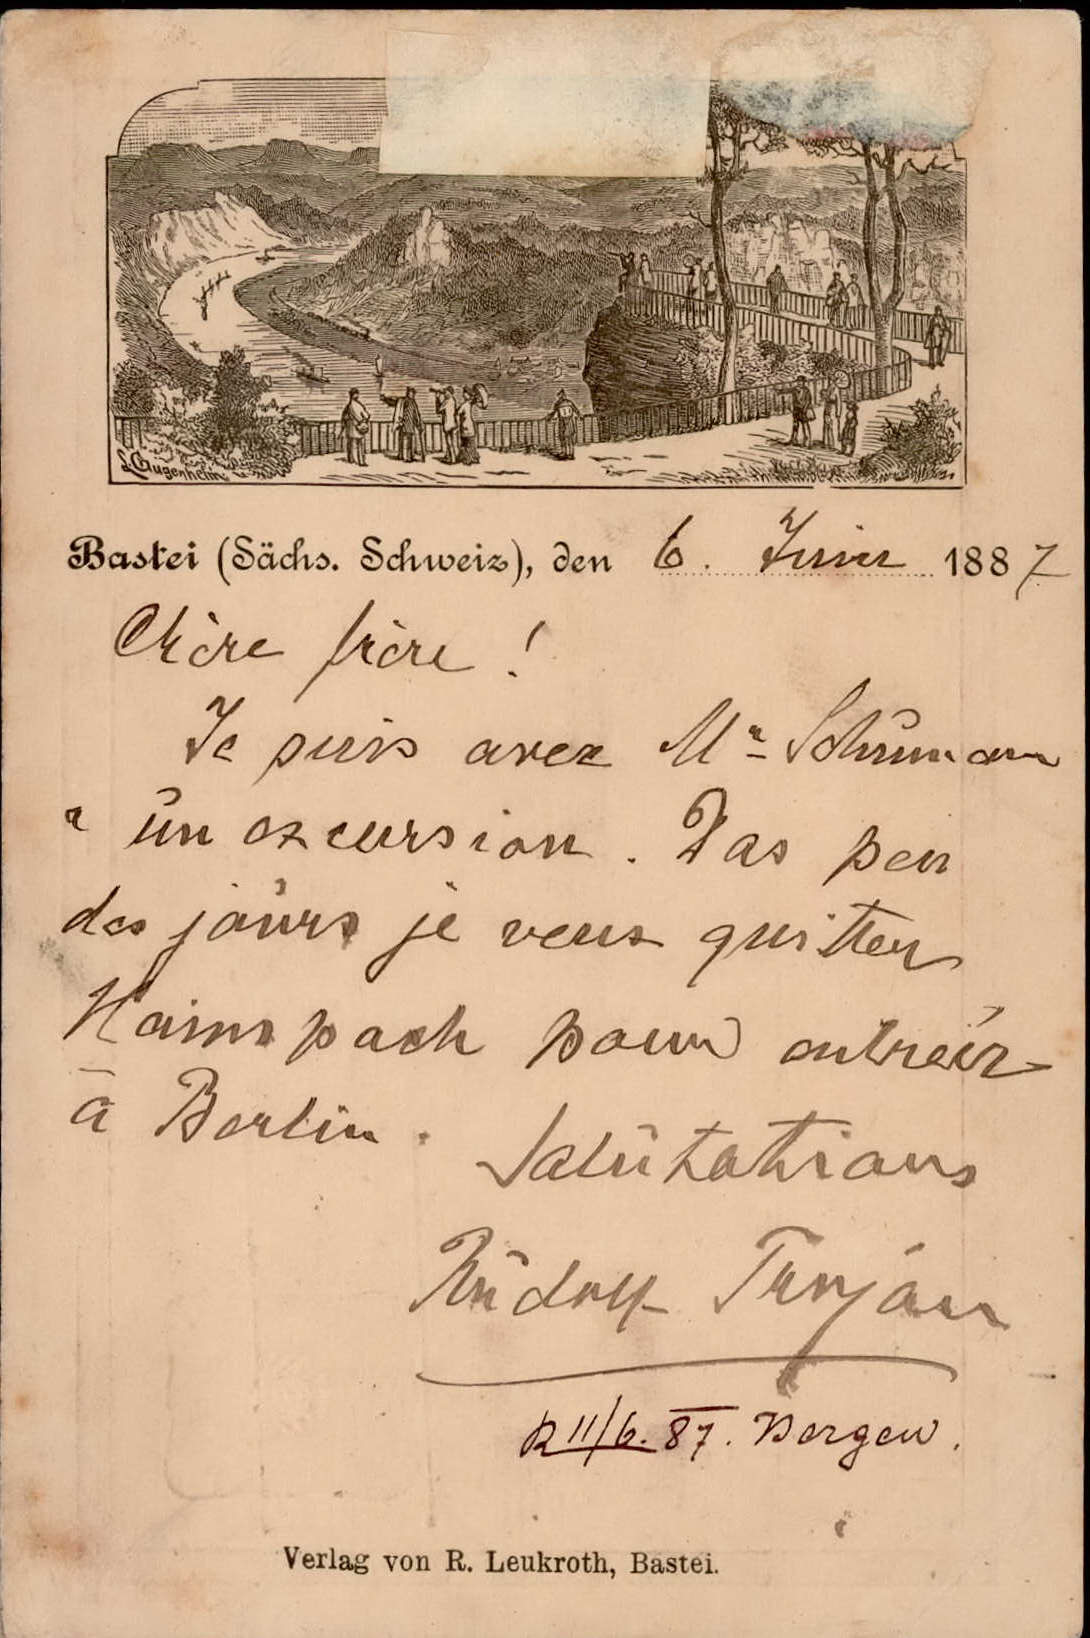 L. Gugenheim
Bastei (Sächs. Schweiz), den 6. Juin 1887
Chère frère !
Je suis avec Mr Schumann
un excursion. Das peu
des jours je veux quitter
Hainspach pour entréer
à Berlin.
Salutations
Rudolf Trojan
R 11/6. 87. Bergen.
Verlag von R. Leukroth, Bastei.